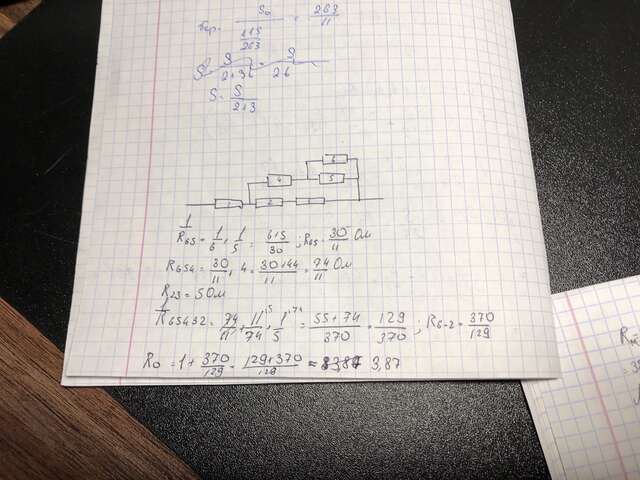 S₀ / (115/263) = 263/11
S/(2+3b) = S/2b
S = S/(2+3)
6
4 5
1 2 3
1/R65 = 1/6 + 1/5 = 6+5/30 ; R65 = 30/11 Ом
R654 = 30/11 + 4 = 30+44/11 = 74/11 Ом
R23 = 5 Ом
1/R65432 = 11/74 + 1/5 = 55+74/370 = 129/370 ; R6-2 = 370/129
R0 = 1 + 370/129 = 129+370/129 = 3,87